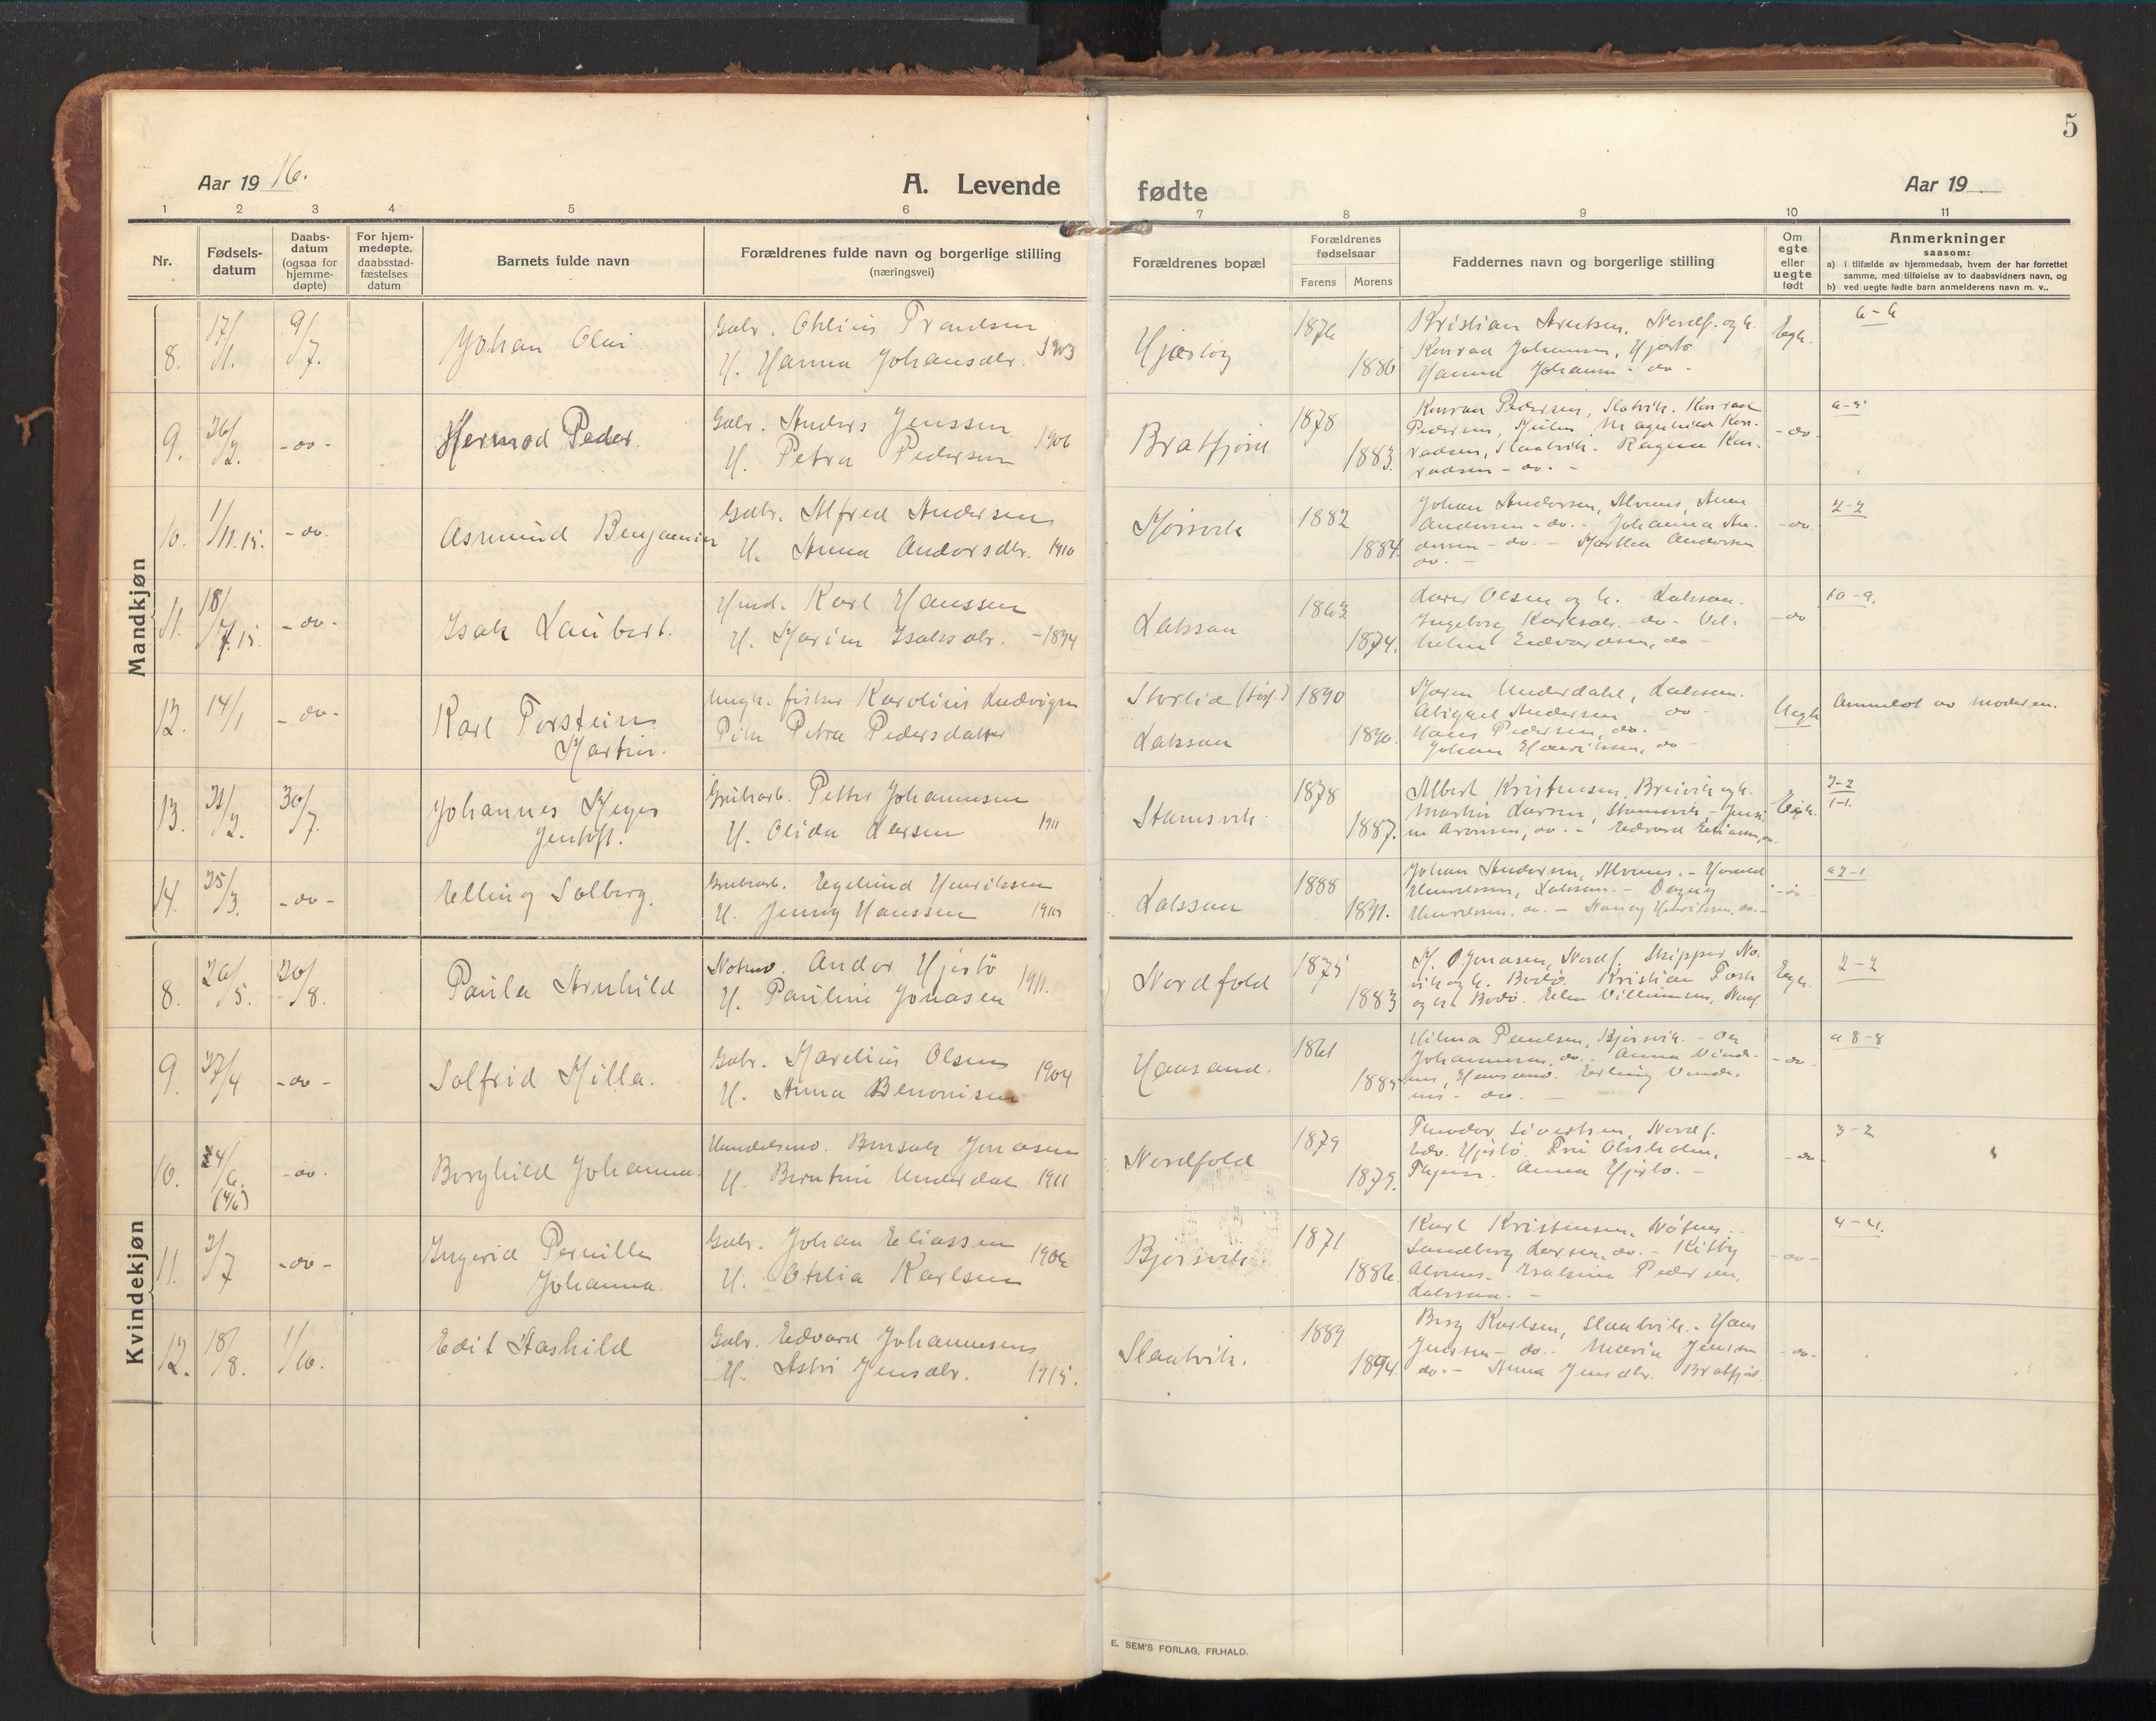 5
Aar 19 16.
A. Levende
fødte
Aar 19
1 2 3 4 5 6 7 8 9 10 11
Nr.
Fødsels-
datum
Daabs-
datum
(ogsaa for
hjemme-
døpte)
For hjem-
medøpte,
daabsstad-
fæstelses
datum
Barnets fulde navn
Forældrenes fulde navn og borgerlige stilling
(næringsvei)
Forældrenes bopæl
Forældrenes
fødselsaar
Farens Morens
Faddernes navn og borgerlige stilling
Om
egte
eller
uegte
født
Anmerkninger
saasom:
a) i tilfælde av hjemmedaab, hvem der har forrettet
samme, med tilføielse av to daabsvidners navn, og
b) ved uegte fødte barn anmelderens navn m. v..
Mandkjøn
8. 17/1. 9/7. Johan Olai
Gbr. Othlius
H. Hanna Johansdtr. 1903
1876
1886
Kristian Arntsen, Nordf. og h.
Konrad Johansen, Hjertø
Hanna Johansen - do -
Egte.
6-6
9. 26/2. -do- Hermod Peder.
Gbr. Anders Jenssen
H. Petra Pedersen 1906
Bratfjord
1878
1883.
Konrad Pedersen, Slatvik. Konrad
Pedersen, Magnhild Kon-
radsen, Slaatvik. Ragna Kon-
radsen - do. -
-do-
a-5
10. 1/11.15. -do. Asmund Benjamin
Gbr. Alfred Andersen
H. Anna Andorsdtr. 1910
1882
1884.
Johan Andersen, Alvenes, Anna
Andersen - do. - Johanna An-
dersen - do. - Martha Andersen
do. -
-do
2-2
11. 18/7.15. -do- Isak Laubert.
Hmd. Karl Hanssen
H. Marien Isaksdtr. -1894
Laksaa
1863
1874.
Lars Olsen og h. - Laksaa.
Ingeborg Karlsdtr. -do- Vil-
helm Edvardsen, do -
-do
10-9.
12. 14/1 -do- Karl Torstein
Martin.
Ungk. fisker Karolius Ludvigsen
Pike Petra Pedersdatter
Storlid
Laksaa
1890
1890.
Maren Underdahl, Laksaa.
Abigael Andersen do
Hans Pedersen, do. -
Johan Henriksen, do -
Uegte
Anmeldt av moderen.
13. 21/2. 30/7. Johannes Meyer
Jentoft.
Grubearb. Petter Johannesen
H. Olida Larsen 1911
Stamsvik
1878
1887.
Albert Kristensen, Breivik og h.
Martin Larsen, Stamsvik - Jensi-
ne Aronsen, do. - Edvard Eliassen, do.
Egte.
3-2
1-1.
14. 25/3. -do- Elling Solberg.
Grubearb. Egelund Henriksen
H. Jenny Hanssen
Laksaa
1888
1891.
Johan Andersen, Alvenes. - Harald
Henriksen, Laksaa. - Dagny
Henriksen, do. - Nancy Henriksen, do. -
-do
a2-1
Kvindekjøn
8. 26/5. 20/8. Paula Arnhild
Andor Hjertø
H. Pauline Jonasen 1911.
Nordfold
1875
1883
Jonasen, Nordf. Skipper No-
vik og h. Bodø. Kristian
og h. Bodø. Ellen Villumsen, Nordf.
Egte.
2-2
9. 27/4 -do- Solfrid Milla.
Gbr. Marelius Olsen
H. Anna Benonisen 1904
Haasand.
1861
1885
Hilma Paulsen, Bjørsvik. - Ole
Johannesen, do. - Anna
-do-
a 8-8
10. 24/6. (4/6) -do. Borghild Johanna.
Handelsmd. Bernsak Jonasen
H. Berntine Underdal 1911
Nordfold
1879
1879.
Theodor Sivertsen, Nordf.
Edv. Hjertø.
Anna Hjertø. -
-do-
3-2
11. 2/7 -do- Ingerid Pernille
Johanna.
Gbr. Johan Eliassen 1906
H. Otelia Karlsen
Bjørsvik
1871
1886.
Karl Kristensen,
Sandberg Larsen, do. - Kitty
Alvenes. Pedersen,
Laksaa. -
-do-
4-4.
12. 18/8. 1/10. Edit Aashild
Gbr. Edvard Johannesen
H. Astri Jensdtr. 1915.
Slaatvik.
1889
1894.
Berg Karlsen, Slaatvik. - Hans
Jenssen - do. - Maria Jenssen
do. - Anna Jensdtr. Bratfjord
-do-
E. SEM'S FORLAG, FR.HALD.